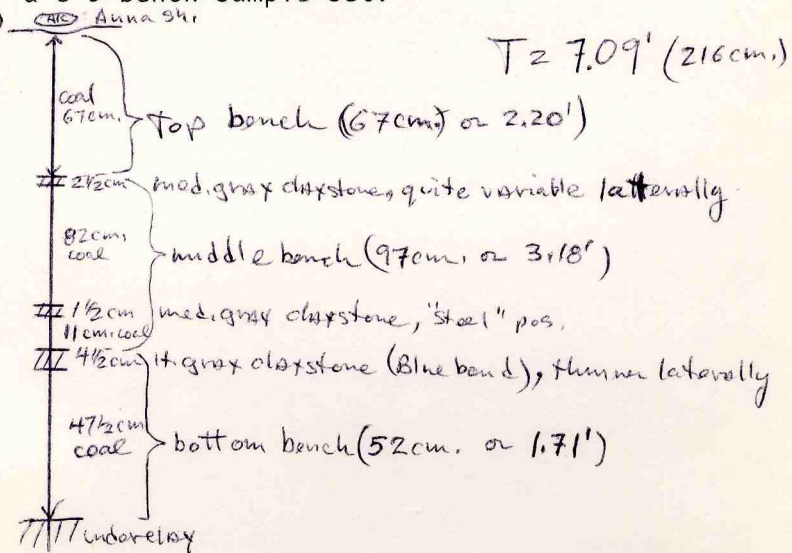 a 3 bench sample set.
Anna Sh.
T = 7.09' (216 cm.)
coal
67cm.
Top bench (67cm.) or 2.20')
2 1/2 cm med. gray claystone, quite variable latterally
82 cm.
coal
middle bench (97cm. or 3.18')
1 1/2 cm med. gray claystone, "steel" pos.
11 cm. coal
4 1/2 cm lt. gray claystone (Blue band), thinner laterally
47 1/2 cm
coal
bottom bench (52 cm. or 1.71')
underclay